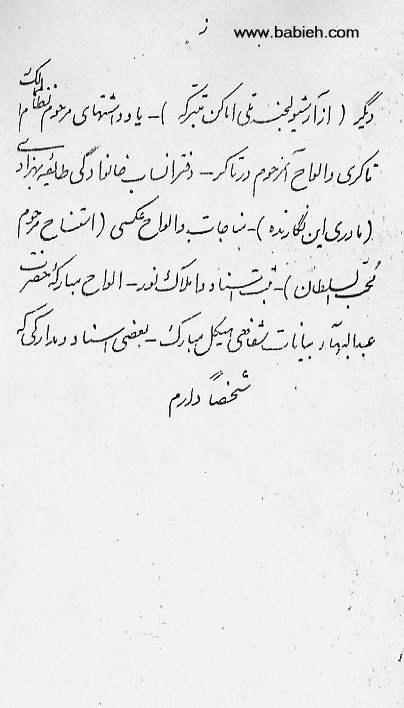 ز
www.babieh.com
دیگر (از آرشیو لجنه ملی اماکن متبرکه) - یادداشتهای مرحوم نظام الممالک
تاکری و الواح آنمرحوم در تاکر - دفتر انساب خانوادگی طایفه بهزادی
(مادری این نگارنده) - مناجات و الواح عکسی (استنساخ مرحوم
محب السلطان) - ثبت اسناد و املاک نور - الواح مبارکه حضرت
عبدالبهاء و بیانات شفاهی هیکل مبارک - بعضی اسناد و مدارکی که
شخصاً دارم